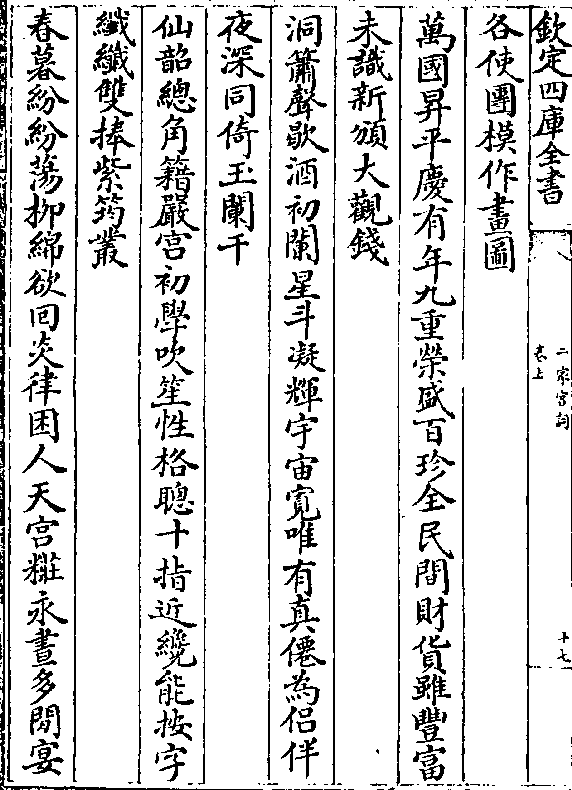 欽定四庫全書
二家宫詞
卷上
十七
各使團模作畫圖
萬國昇平慶有年九重榮盛百珍全民間財貨雖豐富
未識新頒大觀錢
洞簫聲歇酒初闌星斗凝輝宇宙寛唯有真僊為侣伴
夜深同倚玉闌干
仙韶總角籍嚴宫初學吹笙性格聰十指近纔能按字
纖纖雙捧紫筠叢
春暮紛紛蕩柳綿欲回炎律困人天宫粧永晝多閒宴